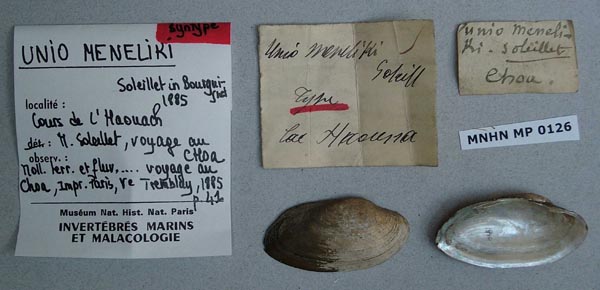 syntype
UNIO MENELIKI
Soleillet in Bourgui-
gnat
1885
localité :
Cours de L'Haouach
dét. : M. Soleillet, voyage au
observ. : CHOA
Moll. terr. et fluv, .... voyage au
Choa, Impr. Paris, Ve Tremblay, 1885
p. 41
Muséum Nat. Hist. Nat. Paris
INVERTÉBRÉS MARINS
ET MALACOLOGIE
Unio meneliki
Soleill
Type
Lac Haoussa
Unio meneli-
ki. Soleillet
Choa.
MNHN MP 0126